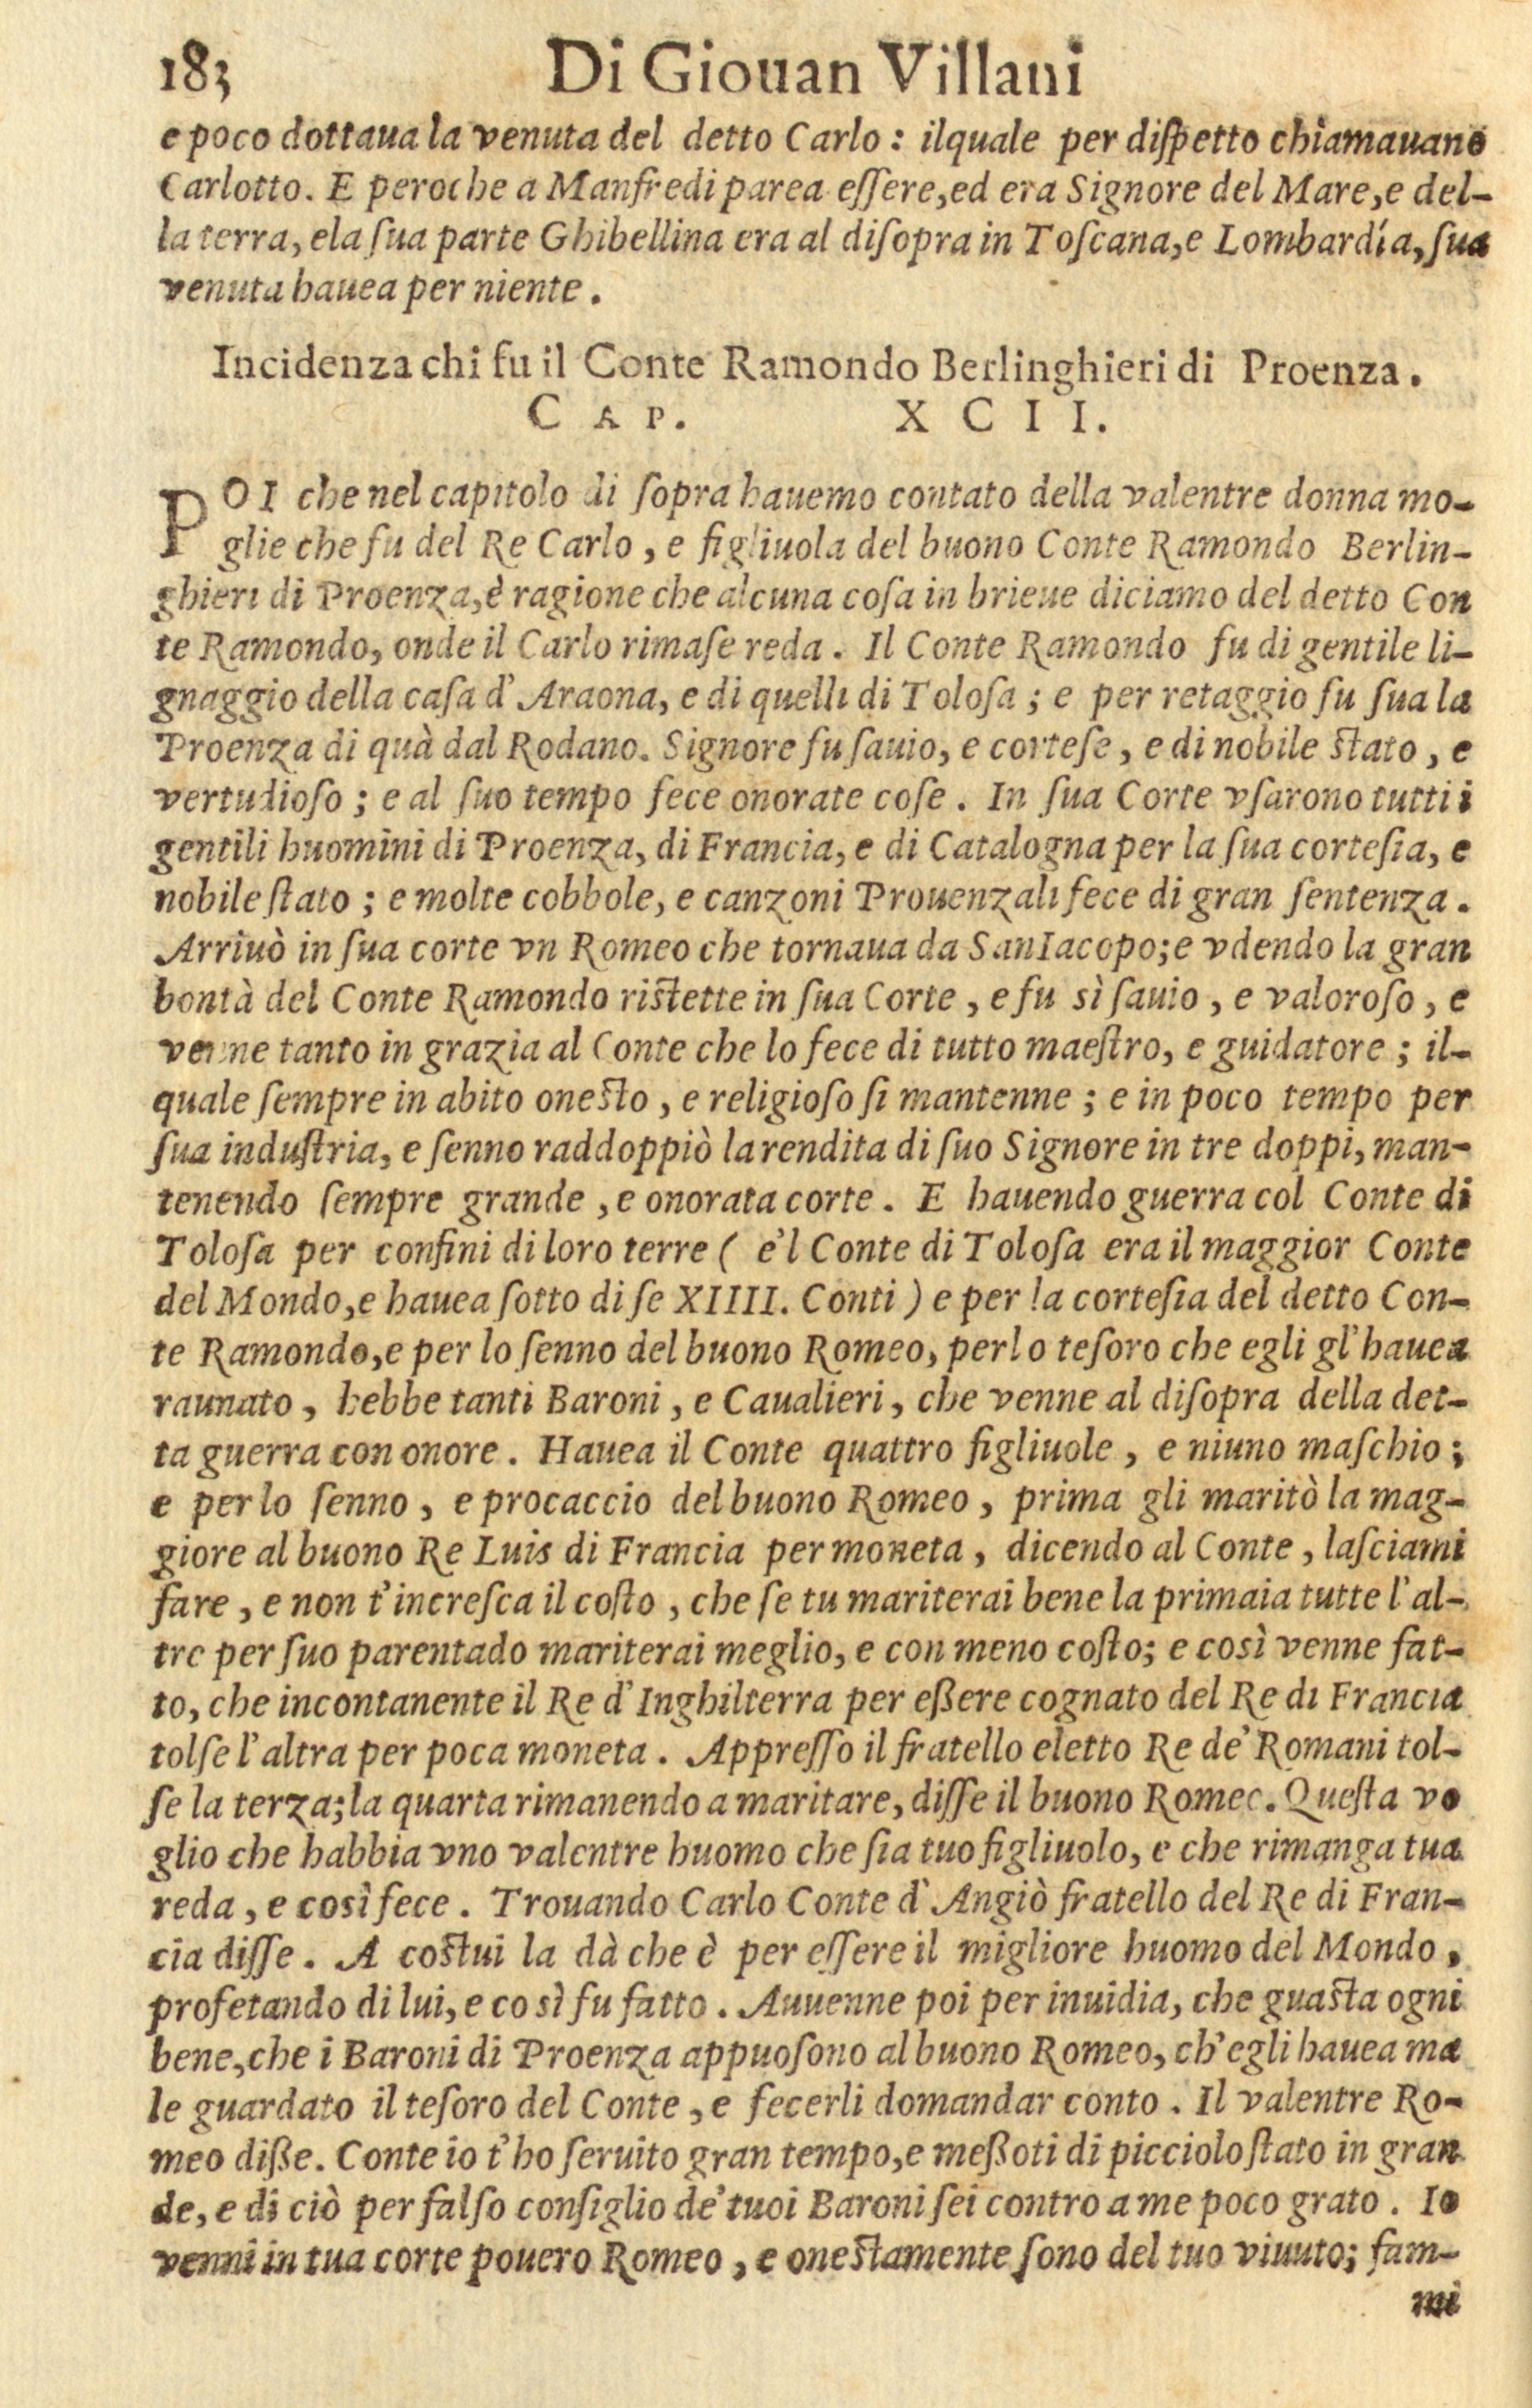 183 Di Giouan Villani
e poco dottaua la venuta del detto Carlo: ilquale per diſpetto chiamauano
Carlotto. E peroche a Manfredi parea eſſere, ed era Signore del Mare, e del-
la terra, e la ſua parte Ghibellina era al diſopra in Toſcana, e Lombardía, ſua
venuta hauea per niente.
Incidenza chi fu il Conte Ramondo Berlinghieri di Proenza.
CAP. XCII.
POI che nel capitolo di ſopra hauemo contato della valentre donna mo-
glie che fu del Re Carlo, e figliuola del buono Conte Ramondo Berlin-
ghieri di Proenza, è ragione che alcuna coſa in brieue diciamo del detto Con
te Ramondo, onde il Carlo rimaſe reda. Il Conte Ramondo fu di gentile li-
gnaggio della caſa d'Araona, e di quelli di Toloſa; e per retaggio fu ſua la
Proenza di quà dal Rodano. Signore fu ſauio, e corteſe, e di nobile ſtato, e
vertudioſo; e al ſuo tempo fece onorate coſe. In ſua Corte vſarono tutti i
gentili huomini di Proenza, di Francia, e di Catalogna per la ſua corteſia, e
nobile ſtato; e molte cobbole, e canzoni Prouenzali fece di gran ſentenza.
Arriuò in ſua corte vn Romeo che tornaua da San Iacopo; e vdendo la gran
bontà del Conte Ramondo riſtette in ſua Corte, e fu sì ſauio, e valoroſo, e
venne tanto in grazia al Conte che lo fece di tutto maeſtro, e guidatore; il-
quale ſempre in abito oneſto, e religioſo ſi mantenne; e in poco tempo per
ſua induſtria, e ſenno raddoppiò la rendita di ſuo Signore in tre doppi, man-
tenendo ſempre grande, e onorata corte. E hauendo guerra col Conte di
Toloſa per confini di loro terre ( e'l Conte di Toloſa era il maggior Conte
del Mondo, e hauea ſotto di ſe XIIII. Conti ) e per la corteſia del detto Con-
te Ramondo, e per lo ſenno del buono Romeo, per lo teſoro che egli gl'hauea
raunato, hebbe tanti Baroni, e Caualieri, che venne al diſopra della det-
ta guerra con onore. Hauea il Conte quattro figliuole, e niuno maſchio;
e per lo ſenno, e procaccio del buono Romeo, prima gli maritò la mag-
giore al buono Re Luis di Francia per moneta, dicendo al Conte, laſciami
fare, e non t'increſca il coſto, che ſe tu mariterai bene la primaia tutte l'al-
tre per ſuo parentado mariterai meglio, e con meno coſto; e così venne fat-
to, che incontanente il Re d'Inghilterra per eßere cognato del Re di Francia
tolſe l'altra per poca moneta. Appreſſo il fratello eletto Re de' Romani tol-
ſe la terza; la quarta rimanendo a maritare, diſſe il buono Romeo. Queſta vo
glio che habbia vno valentre huomo che ſia tuo figliuolo, e che rimanga tua
reda, e così fece. Trouando Carlo Conte d'Angiò fratello del Re di Fran-
cia diſſe. A coſtui la dà che è per eſſere il migliore huomo del Mondo,
profetando di lui, e co sì fu fatto. Auuenne poi per inuidia, che guaſta ogni
bene, che i Baroni di Proenza appuoſono al buono Romeo, ch'egli hauea ma
le guardato il teſoro del Conte, e fecerli domandar conto. Il valentre Ro-
meo diße. Conte io t'ho ſeruito gran tempo, e meßoti di picciolo ſtato in gran
de, e di ciò per falſo conſiglio de' tuoi Baroni ſei contro a me poco grato. Io
venni in tua corte pouero Romeo, e oneſtamente ſono del tuo viuuto; fam-
mi